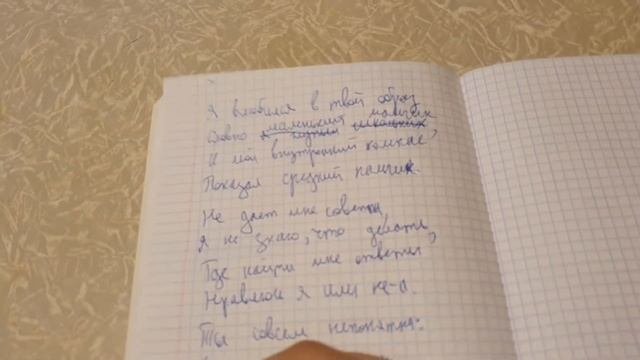 Я влюбился в твой образ
Давно маленький мальчик
И мой внутренний компас
Показал средний пальчик.
Не дает мне совета,
Я не знаю, что делать,
Где найти мне ответы,
Нравлюсь я или не-а.
Ты совсем непонятна: